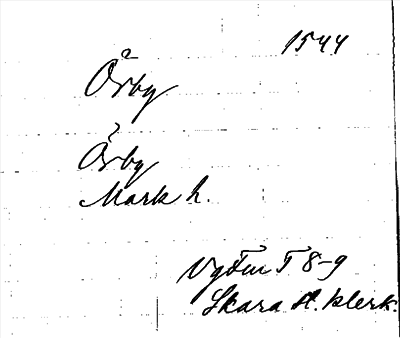 1544
Örby
Örby
Mark h.
VgFmT T 8-9
Skara st. klerk.